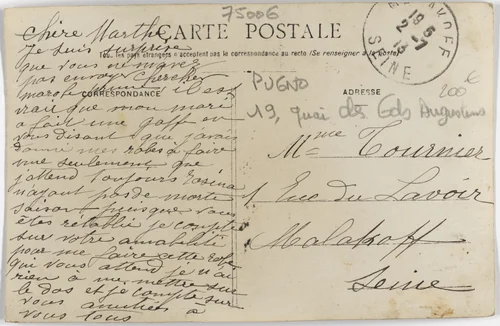 75006
CARTE POSTALE
MALAKOFF
SEINE
Tous les pays étrangers n'acceptent pas la correspondance au recto (Se renseigner à la poste)
CORRESPONDANCE
ADRESSE
PUGNO
200€
19, quai des Gds Augustins
Chère Marthe
Je suis surprise
que vous ne
pas envoyé chercher
il est
vrai que mon mari
a fait une gaff en
vous disant que j'avais
donné mes robes à faire
une seulement que
j'attend toujours
n'ayant pas de morte
saison puisque vous
êtes rétablie je compte
sur votre amabilité
pour me faire cette robe
qui vous attend je n'ai
rien à me mettre sur
le dos et je compte sur
vous amitiés à
vous tous
Mme Tournier
1 Rue du Lavoir
Malakoff
Seine